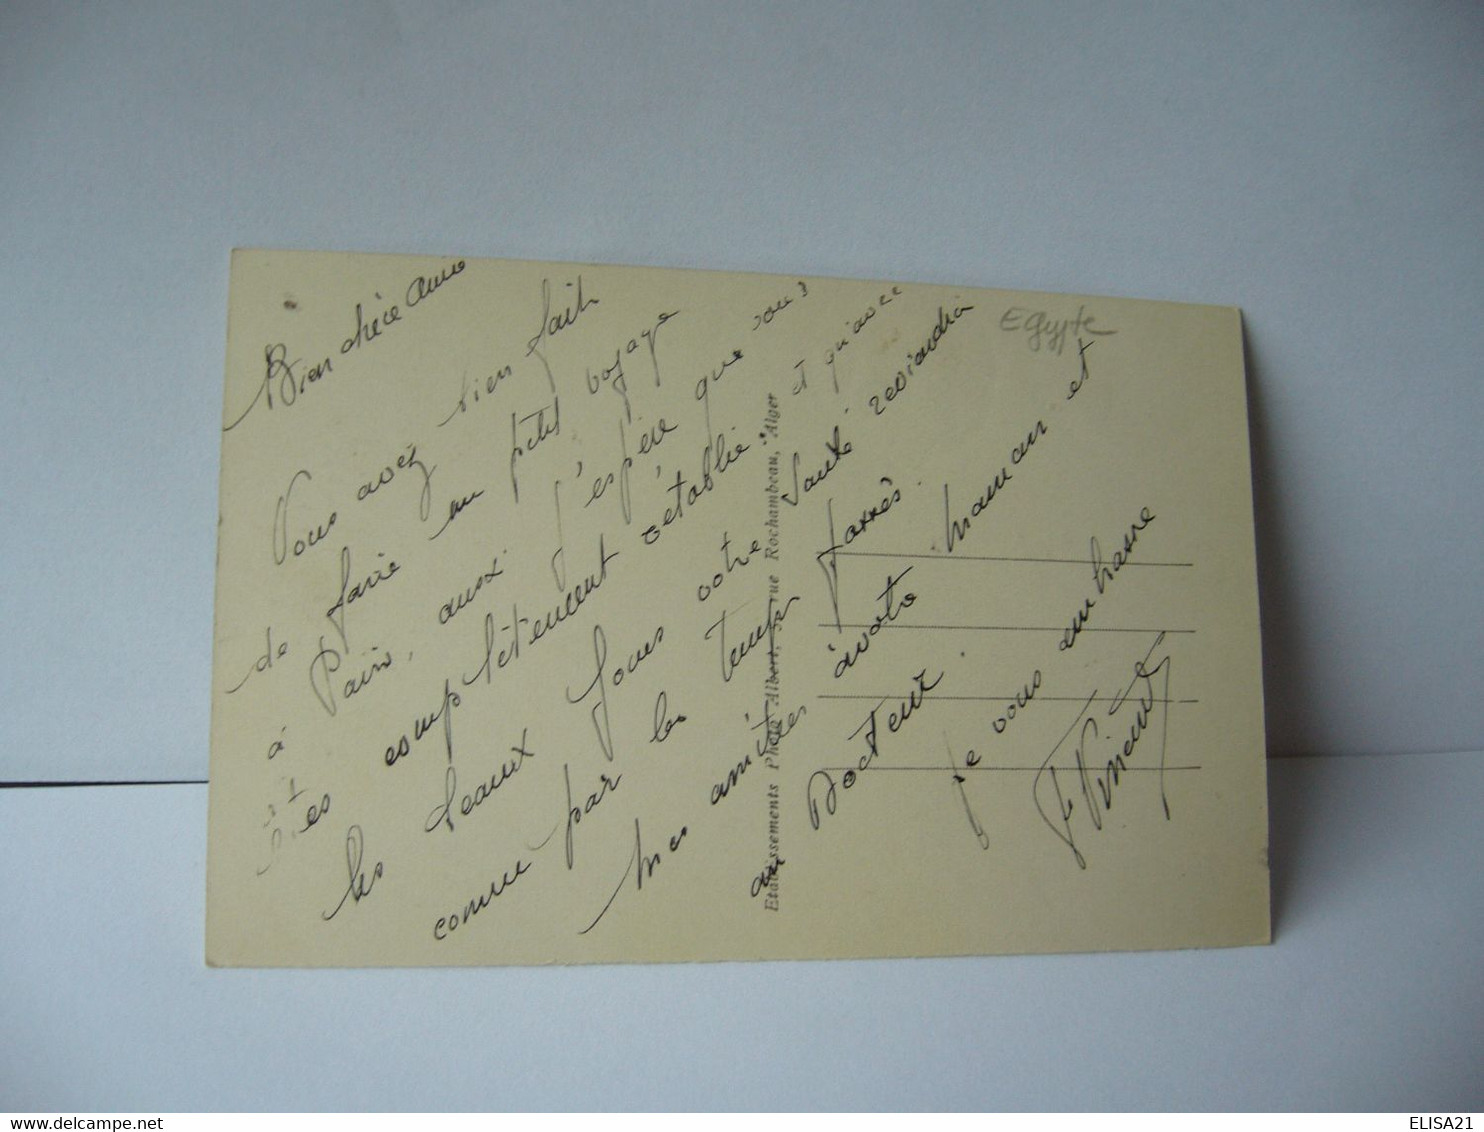 Bien chère Anne
Vous avez bien fait
de faire un petit voyage
à Paris, aussi j'espère que vous
êtes complètement rétablie et qu'avec
les beaux jours votre santé reviendra
comme par les temps passés.
Mes amitiés à votre maman et
au Docteur.
Je vous embrasse
Vincent
Egypte
Etablissements Photo Albert, rue Rochambeau, Alger
delcampe.net
ELISA21